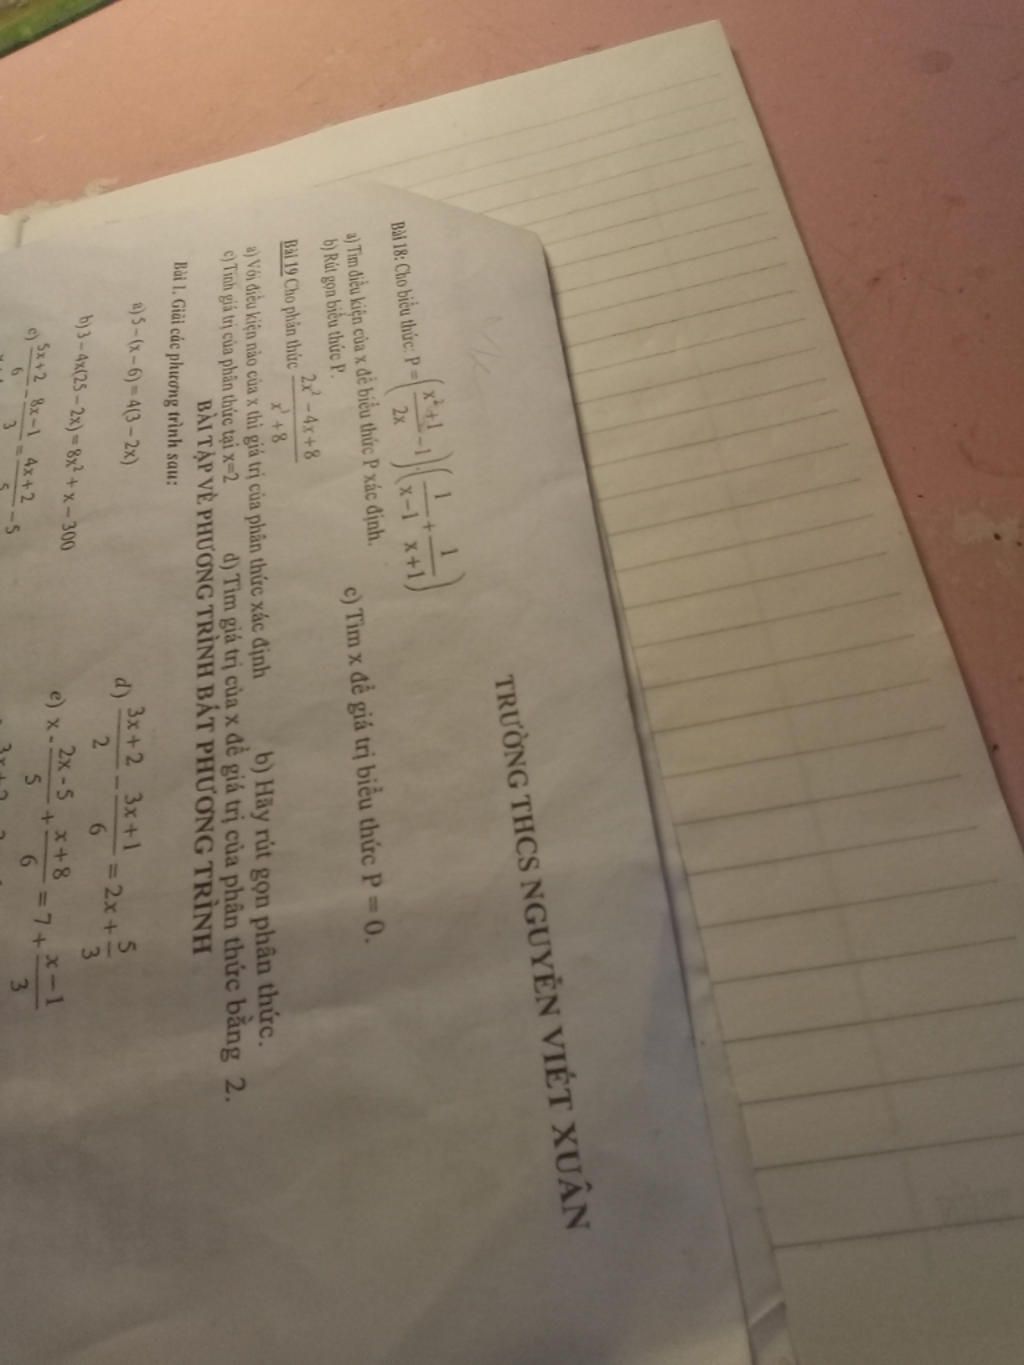 TRƯỜNG THCS NGUYỄN VIẾT XUÂN
Bài 18: Cho biểu thức: P = ( (x² + 1)/(2x) − 1 ) . ( 1/(x − 1) + 1/(x + 1) )
a) Tìm điều kiện của x để biểu thức P xác định.
b) Rút gọn biểu thức P. c) Tìm x để giá trị biểu thức P = 0.
Bài 19 Cho phân thức (2x² − 4x + 8)/(x³ + 8)
a) Với điều kiện nào của x thì giá trị của phân thức xác định b) Hãy rút gọn phân thức.
c) Tính giá trị của phân thức tại x=2 d) Tìm giá trị của x để giá trị của phân thức bằng 2.
BÀI TẬP VỀ PHƯƠNG TRÌNH BẤT PHƯƠNG TRÌNH
Bài 1. Giải các phương trình sau:
a) 5 − (x − 6) = 4(3 − 2x) d) (3x + 2)/2 − (3x + 1)/6 = 2x + 5/3
b) 3 − 4x(25 − 2x) = 8x² + x − 300 e) x - (2x - 5)/5 + (x + 8)/6 = 7 + (x − 1)/3
c) (5x + 2)/6 − (8x − 1)/3 = (4x + 2)/5 − 5